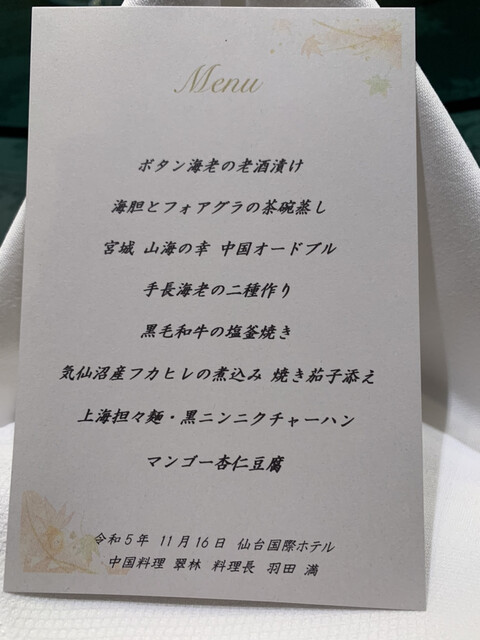 Menu
ボタン海老の老酒漬け
海胆とフォアグラの茶碗蒸し
宮城 山海の幸 中国オードブル
手長海老の二種作り
黒毛和牛の塩釜焼き
気仙沼産フカヒレの煮込み 焼き茄子添え
上海担々麺・黒ニンニクチャーハン
マンゴー杏仁豆腐
令和5年 11月16日 仙台国際ホテル
中国料理 翠林 料理長 羽田 満